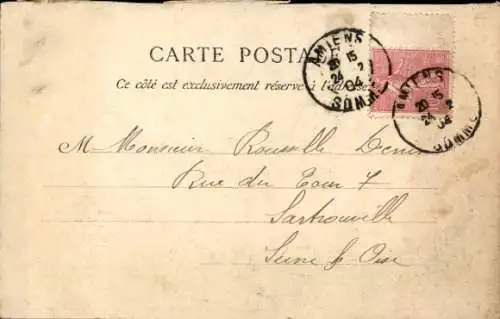 CARTE POSTALE
Ce côté est exclusivement réservé à l'adresse
AMIENS
20 15
24 2
04
SOMME
AMIENS
20 15
24 2
04
SOMME
M Monsieur Rousselle Denis
Rue du Tour 7
Sartrouville
Seine & Oise